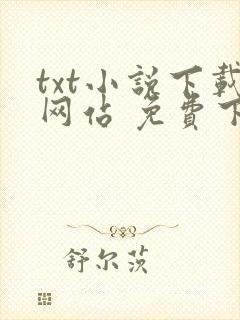 txt小說下載
网佔 免費下
舒尔茨